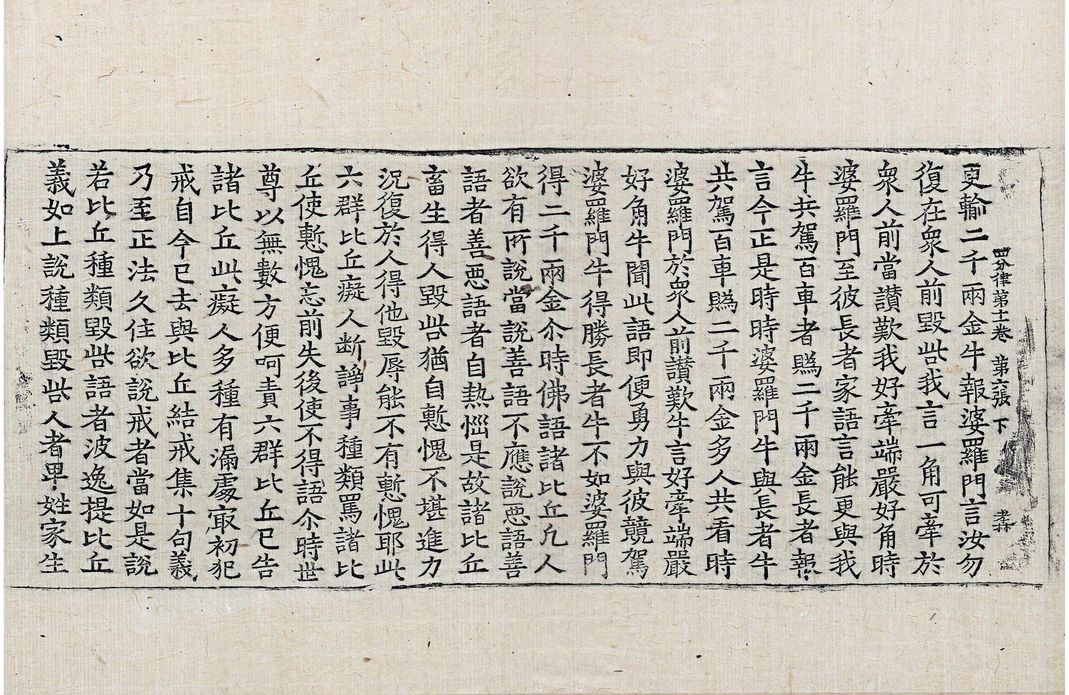 四分律第十一卷 第六張 下
更輸二千兩金牛報婆羅門言汝勿
復在衆人前毀呰我言一角可牽於
衆人前當讃歎我好牽端嚴好角時
婆羅門至彼長者家語言能更與我
牛共駕百車者賭二千兩金長者報
言今正是時時婆羅門牛與長者牛
共駕百車賭二千兩金多人共看時
婆羅門於衆人前讃歎牛言好牽端嚴
好角牛聞此語即便勇力與彼競駕
婆羅門牛得勝長者牛不如婆羅門
得二千兩金尒時佛語諸比丘凡人
欲有所說當說善語不應說惡語善
語者善惡語者自熱惱是故諸比丘
畜生得人毀呰猶自慙愧不堪進力
況復於人得他毀辱能不有慙愧耶此
六群比丘癡人斷諍事種類罵諸比
丘使慙愧忘前失後使不得語尒時世
尊以無數方便呵責六群比丘已告
諸比丘此癡人多種有漏處冣初犯
戒自今已去與比丘結戒集十句義
乃至正法久住欲說戒者當如是說
若比丘種類毀呰語者波逸提比丘
義如上說種類毀呰人者卑姓家生